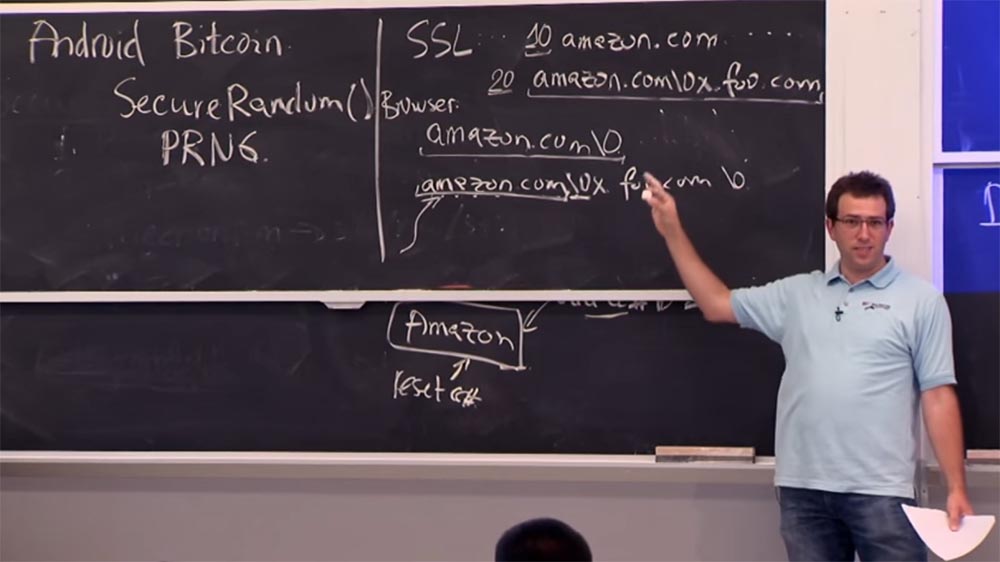 Android Bitcoin
SecureRandom()
PRNG
SSL: ... 10 amazon.com .....
20 amazon.com\0x.foo.com
Browser:
amazon.com\0
amazon.com\0x.foo.com \0
Amazon
reset